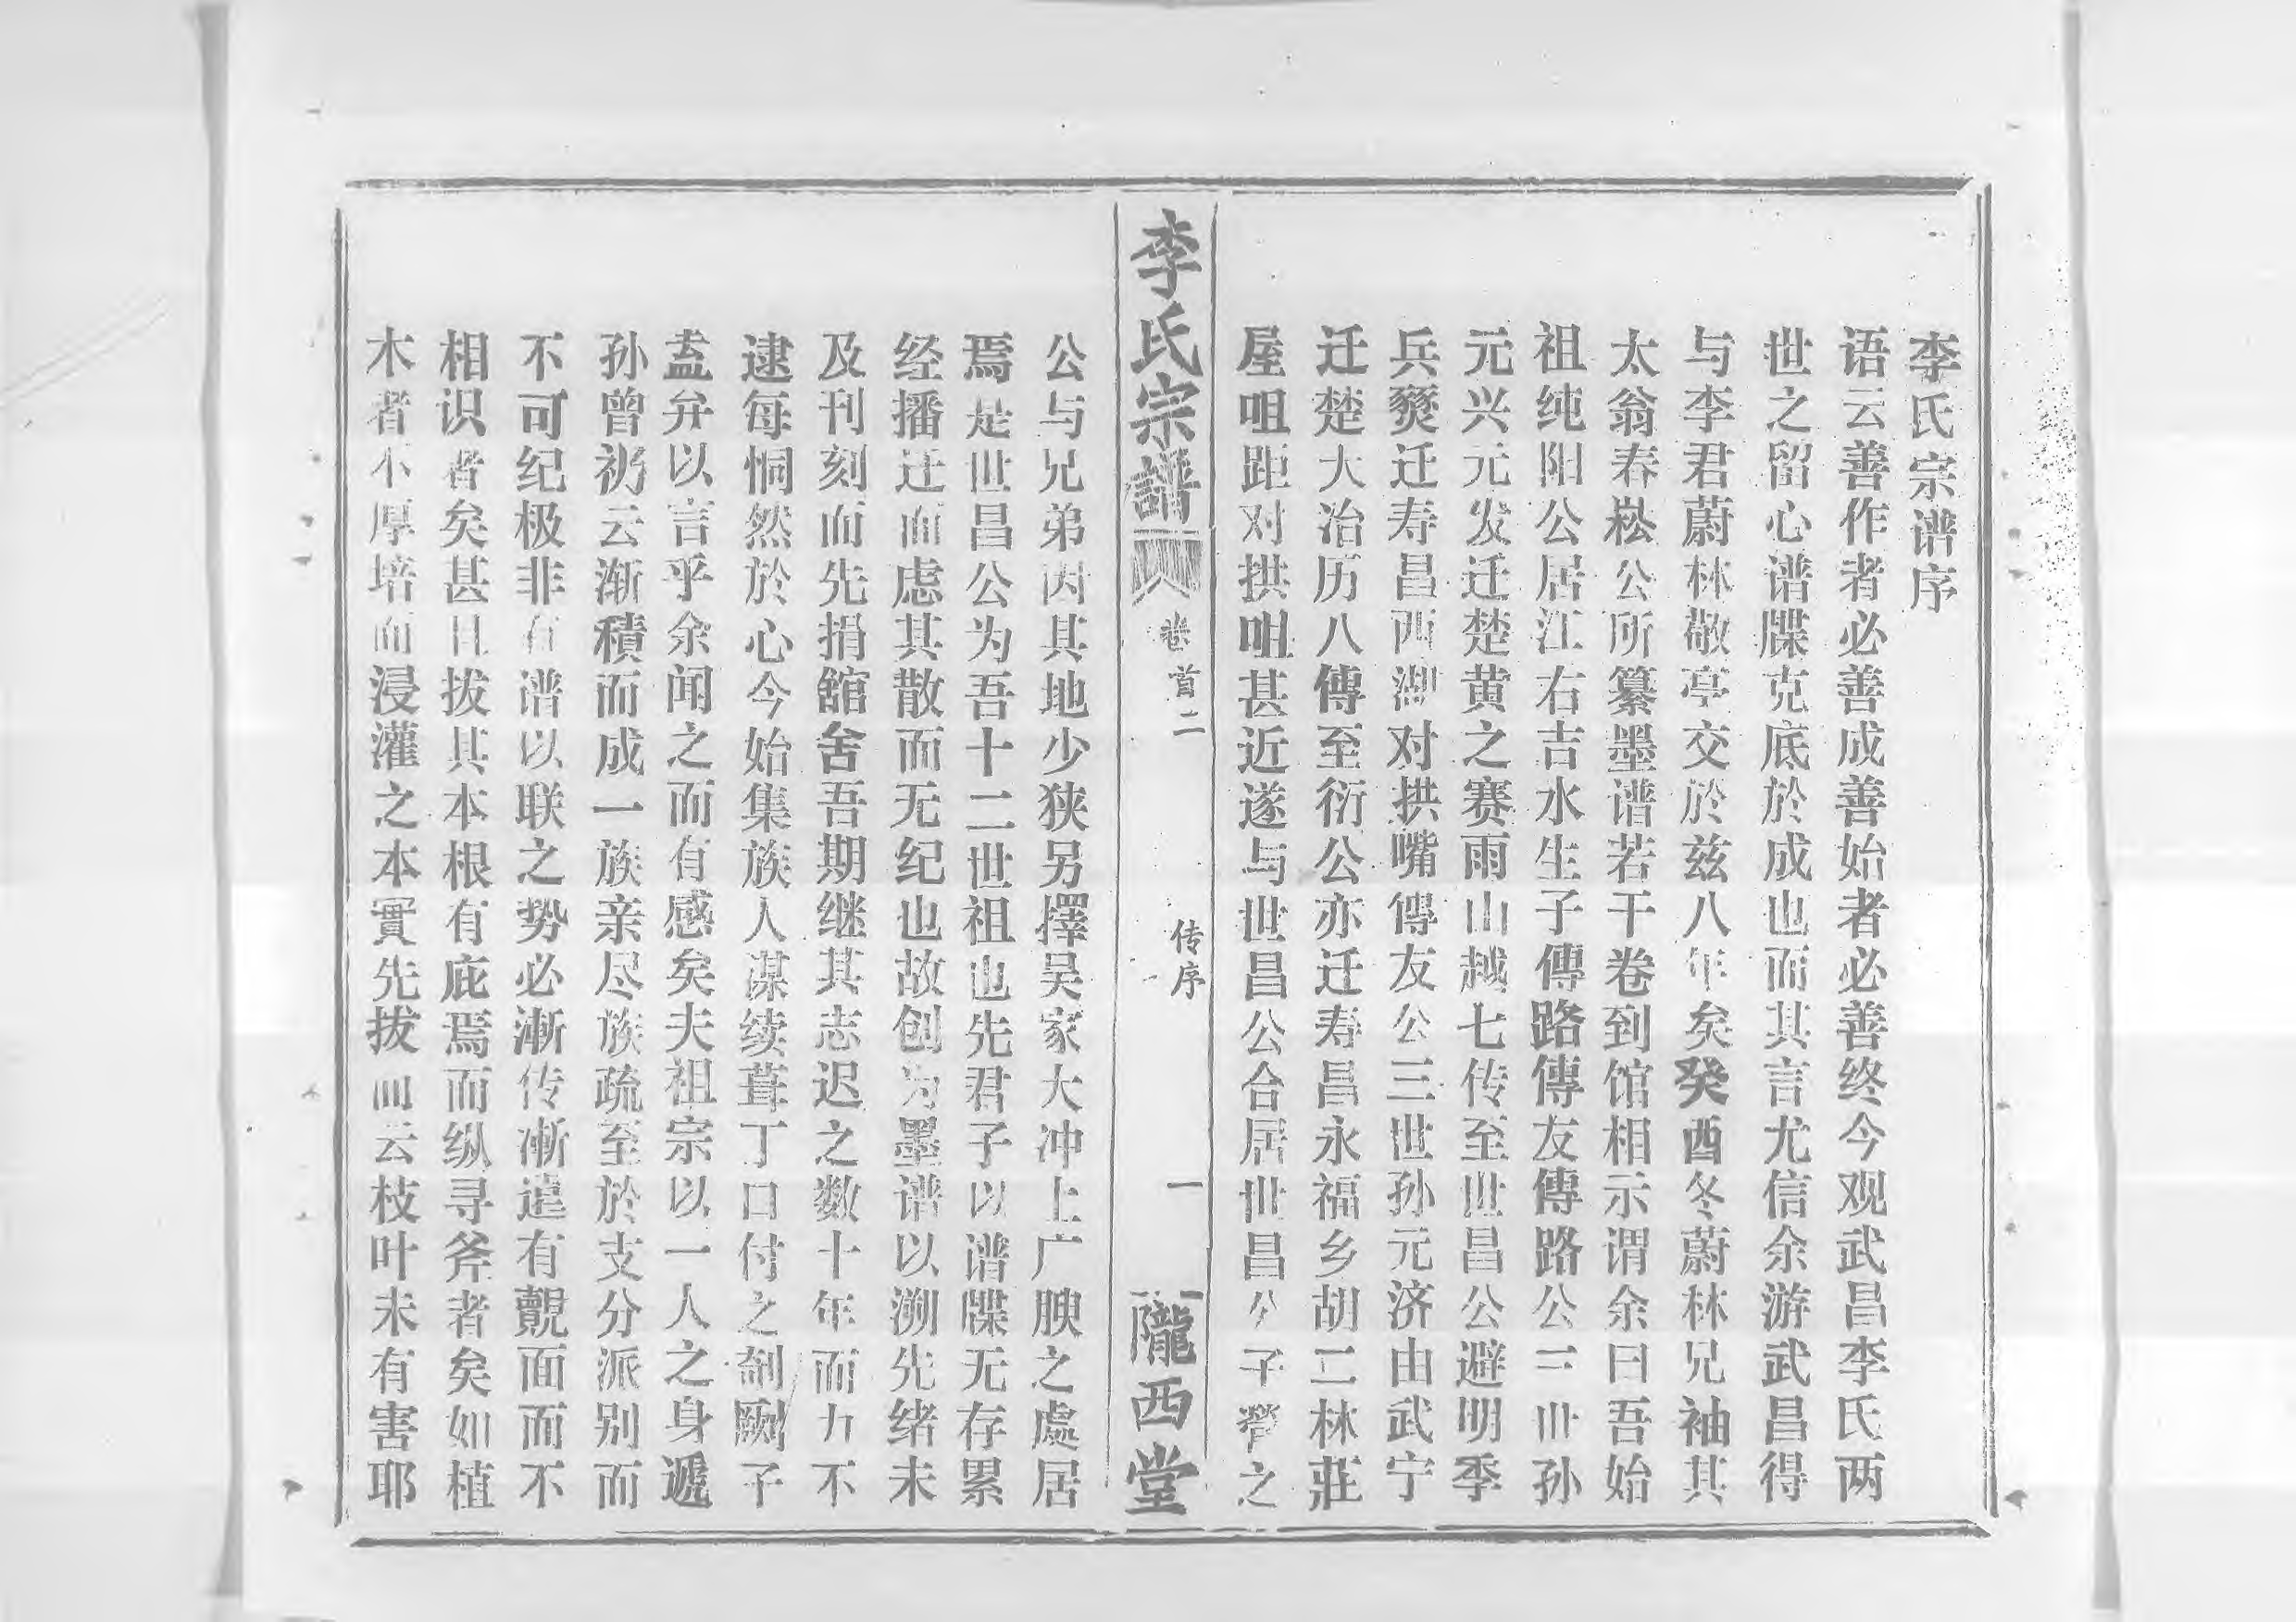 李氏宗谱序
语云善作者必善成善始者必善终今观武昌李氏两
世之留心谱牒克底於成也而其言尤信余游武昌得
与李君蔚林敬亭交於兹八年矣癸酉冬蔚林兄袖其
太翁春崧公所纂墨谱若干卷到馆相示谓余曰吾始
祖纯阳公居江右吉水生子傳路傳友傳路公三世孙
元兴元发迁楚黄之赛雨山越七传至世昌公避明季
兵燹迁寿昌西湖对拱嘴傳友公三世孙元济由武宁
迁楚大治历八傳至衍公亦迁寿昌永福乡胡二林莊
屋咀距对拱咀甚近遂与世昌公合居世昌公子膂之
李氏宗譜
卷首二
传序
一
隴西堂
公与兄弟因其地少狭另擇吴家大冲上广腴之處居
焉是世昌公为吾十二世祖也先君子以谱牒无存累
经播迁而虑其散而无纪也故创为墨谱以溯先绪未
及刊刻而先捐館舍吾期继其志迟之数十年而力不
逮每恫然於心今始集族人谋续葺丁口付之剞劂子
盍弁以言乎余闻之而有感矣夫祖宗以一人之身遞
孙曾礽云渐積而成一族亲尽族疏至於支分派别而
不可纪极非有谱以联之势必漸传漸遠有觀面而不
相识者矣甚且拔其本根有庇焉而纵寻斧者矣如植
木者不厚培而浸灌之本實先拔而云枝叶未有害耶